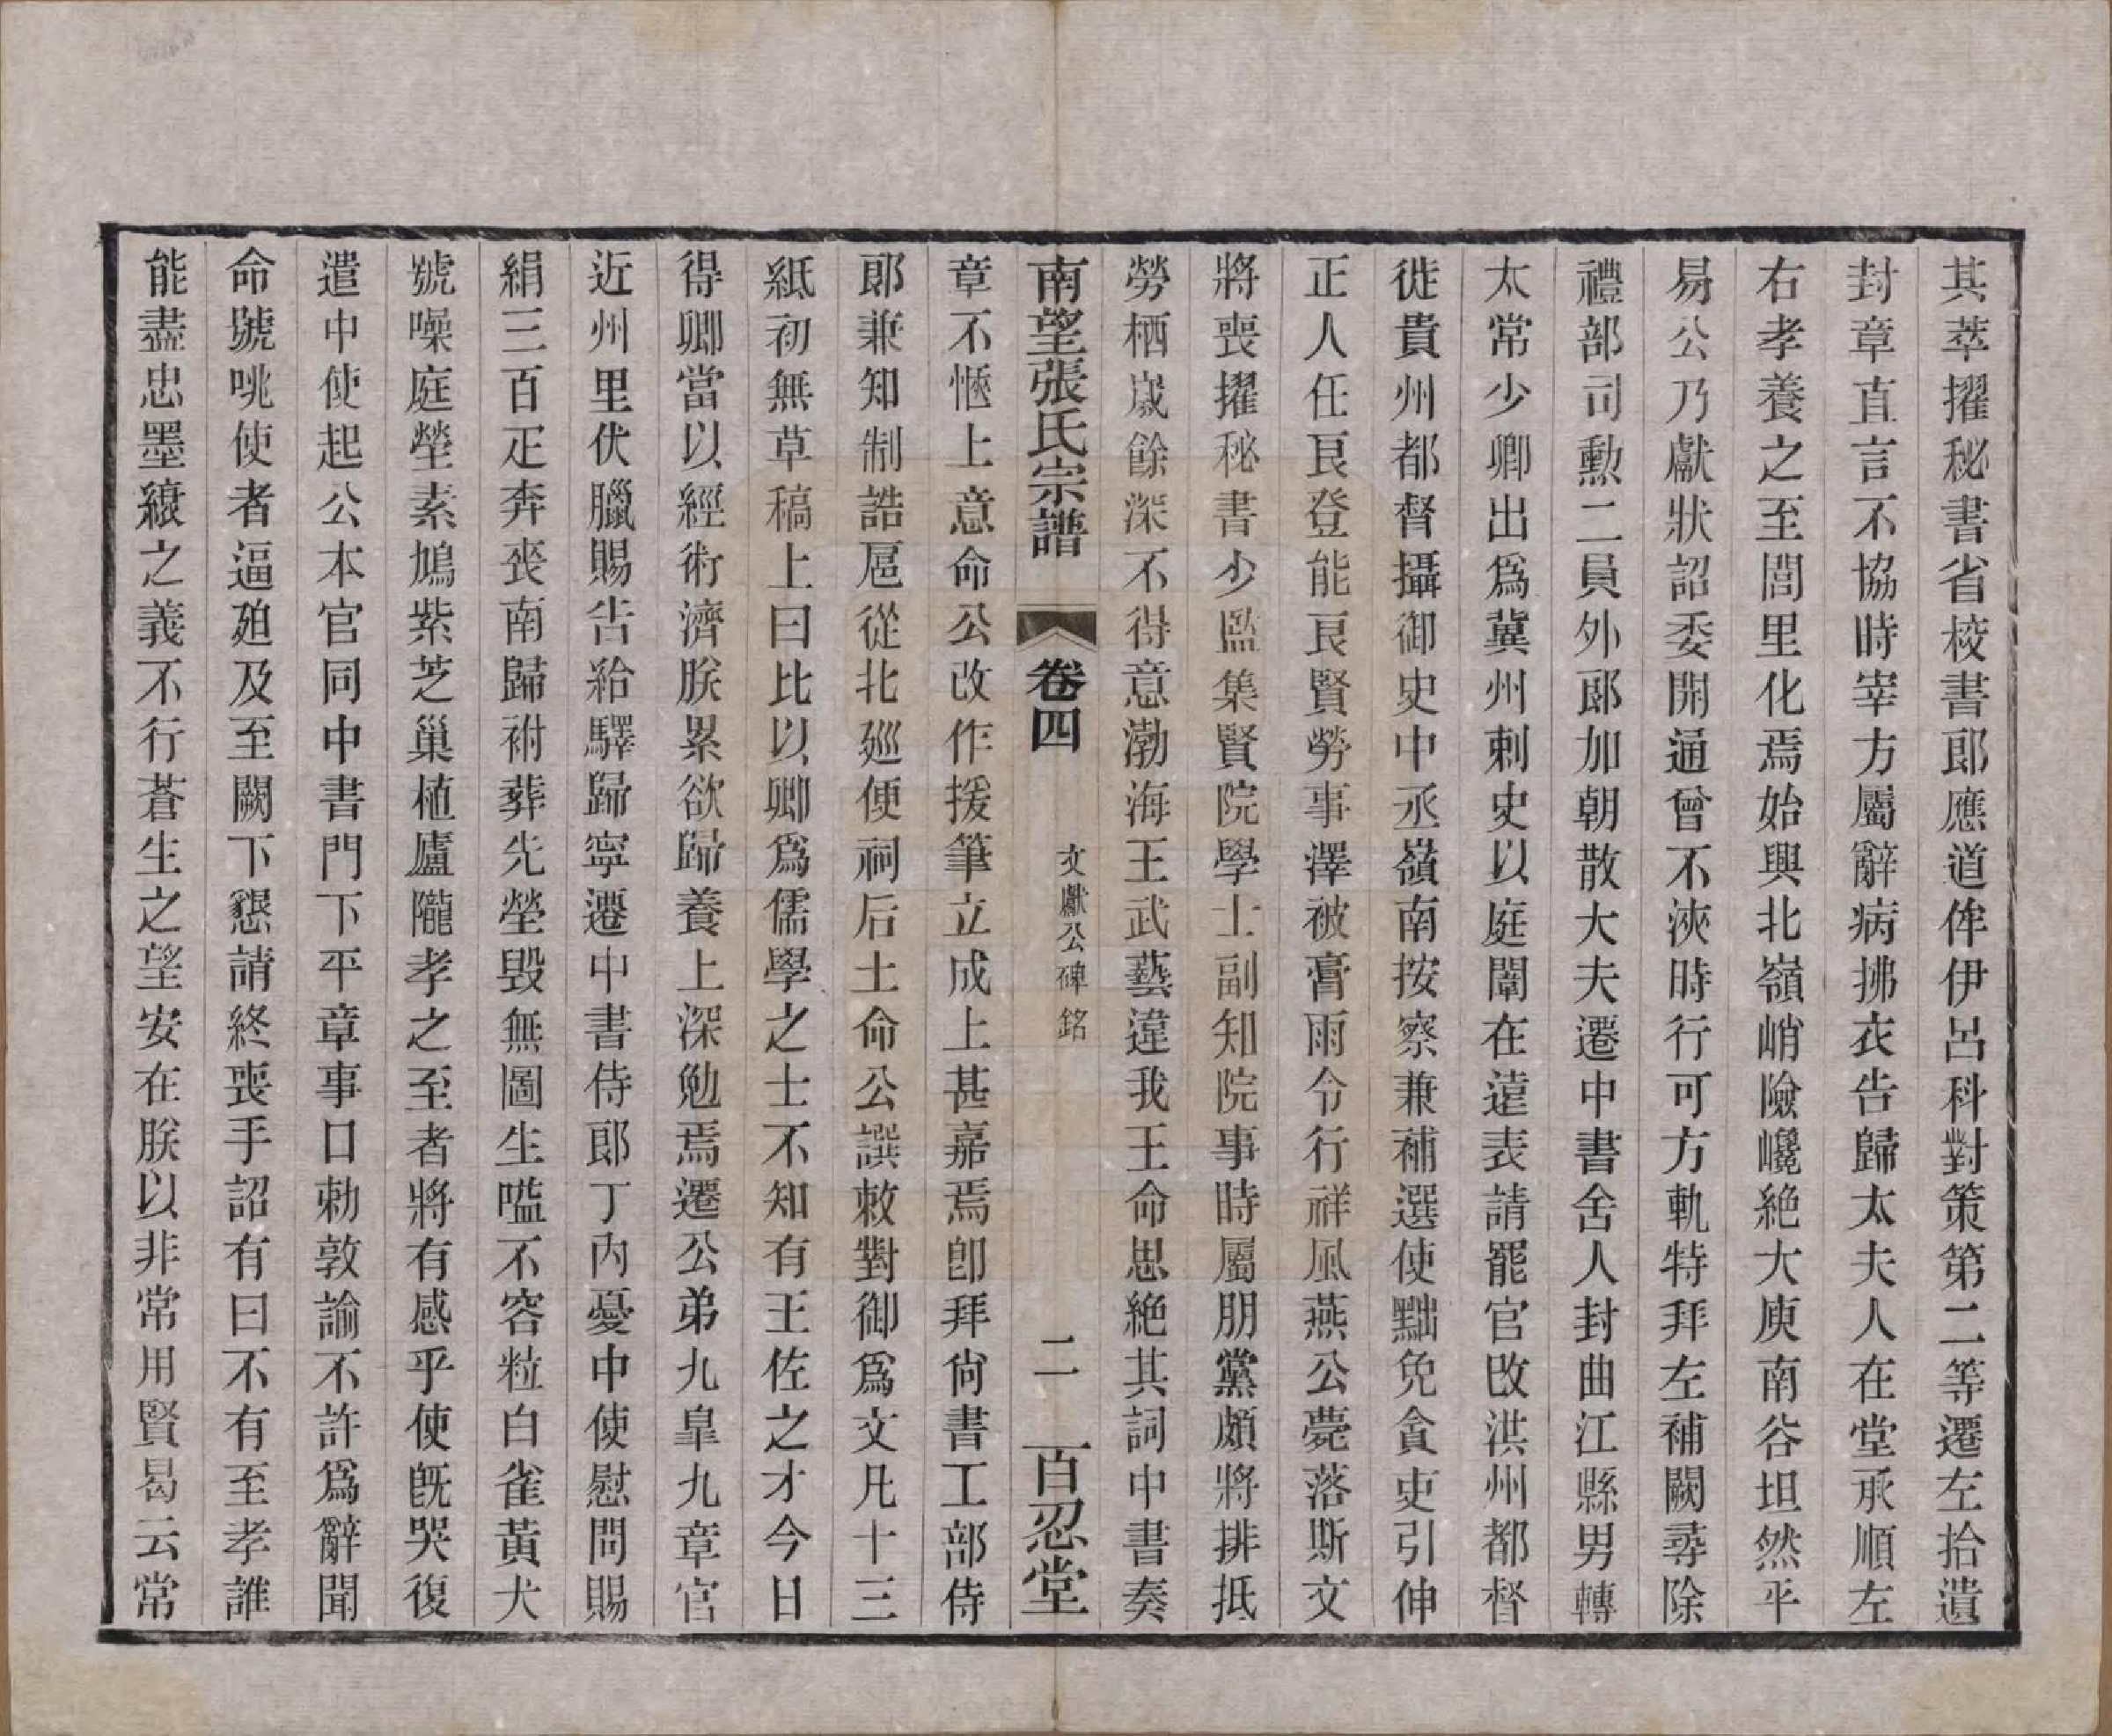 其萃擢秘書省校書郎應道侔伊呂科對策第二等遷左拾遺
封章直言不協時宰方屬辭病拂衣告歸太夫人在堂承順左
右孝養之至閭里化焉始興北嶺峭險巉絶大庾南谷坦然平
易公乃獻狀詔委開通曾不浹時行可方軌特拜左補闕尋除
禮部司勲二員外郎加朝散大夫遷中書舍人封曲江縣男轉
太常少卿出爲冀州刺史以庭闈在遠表請罷官改洪州都督
徙貴州都督攝御史中丞嶺南按察兼補選使黜免貪吏引伸
正人任良登能良賢勞事澤被膏雨令行祥風燕公薨落斯文
將喪擢秘書少監集賢院學士副知院事時屬朋黨頗將排抵
勞栖歲餘深不得意渤海王武藝違我王命思絶其詞中書奏
南望張氏宗譜 卷四 文獻公碑銘 二 百忍堂
章不愜上意命公改作援筆立成上甚嘉焉卽拜尙書工部侍
郎兼知制誥扈從北廵便祠后土命公譔敕對御爲文凡十三
紙初無草稿上曰比以卿爲儒學之士不知有王佐之才今日
得卿當以經術濟朕累欲歸養上深勉焉遷公弟九皐九章官
近州里伏臘賜告給驛歸寧遷中書侍郎丁內憂中使慰問賜
絹三百疋奔喪南歸祔葬先塋毀無圖生嗌不容粒白雀黃犬
號噪庭塋素鳩紫芝巢植廬隴孝之至者將有感乎使旣哭復
遣中使起公本官同中書門下平章事口勅敦諭不許爲辭聞
命號咷使者逼廹及至闕下懇請終喪手詔有曰不有至孝誰
能盡忠墨縗之義不行蒼生之望安在朕以非常用賢曷云常